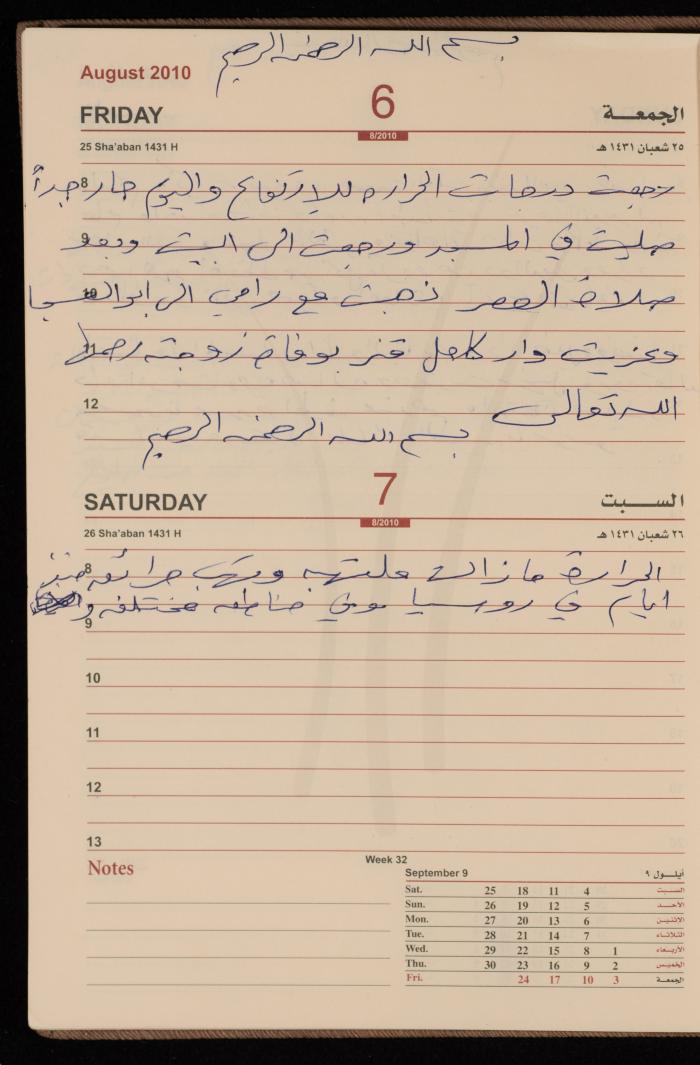 بسم الله الرحمن الرحيم
August 2010
FRIDAY 6 الجمعة
8/2010
25 Sha'aban 1431 H ٢٥ شعبان ١٤٣١ هـ
8 رجعت درجات الحراره للارتفاع واليوم حار جداً
9 صليت في المسجد ورجعت الى البيت وبعد
10 صلاة العصر ذهبت مع رامي الى ابو
11 وعزيت وار كامل قنر بوفاة زوجته رحمها
12 الله تعالى
بسم الله الرحمن الرحيم
SATURDAY 7 السبت
8/2010
26 Sha'aban 1431 H ٢٦ شعبان ١٤٣١ هـ
8 الحرارة مازالت ملتهبه وتهب حرائق منذ
ايام في روسيا وفي مناطق مختلفه
9
10
11
12
13
Notes
Week 32
September 9 أيلول ٩
Sat. 25 18 11 4 السبت
Sun. 26 19 12 5 الأحد
Mon. 27 20 13 6 الاثنين
Tue. 28 21 14 7 الثلاثاء
Wed. 29 22 15 8 1 الأربعاء
Thu. 30 23 16 9 2 الخميس
Fri. 24 17 10 3 الجمعة